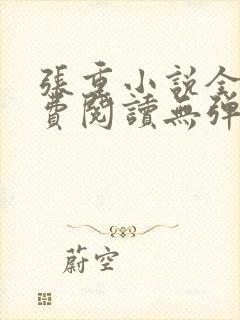 張重小說全
費閱讀無彈
蔚空